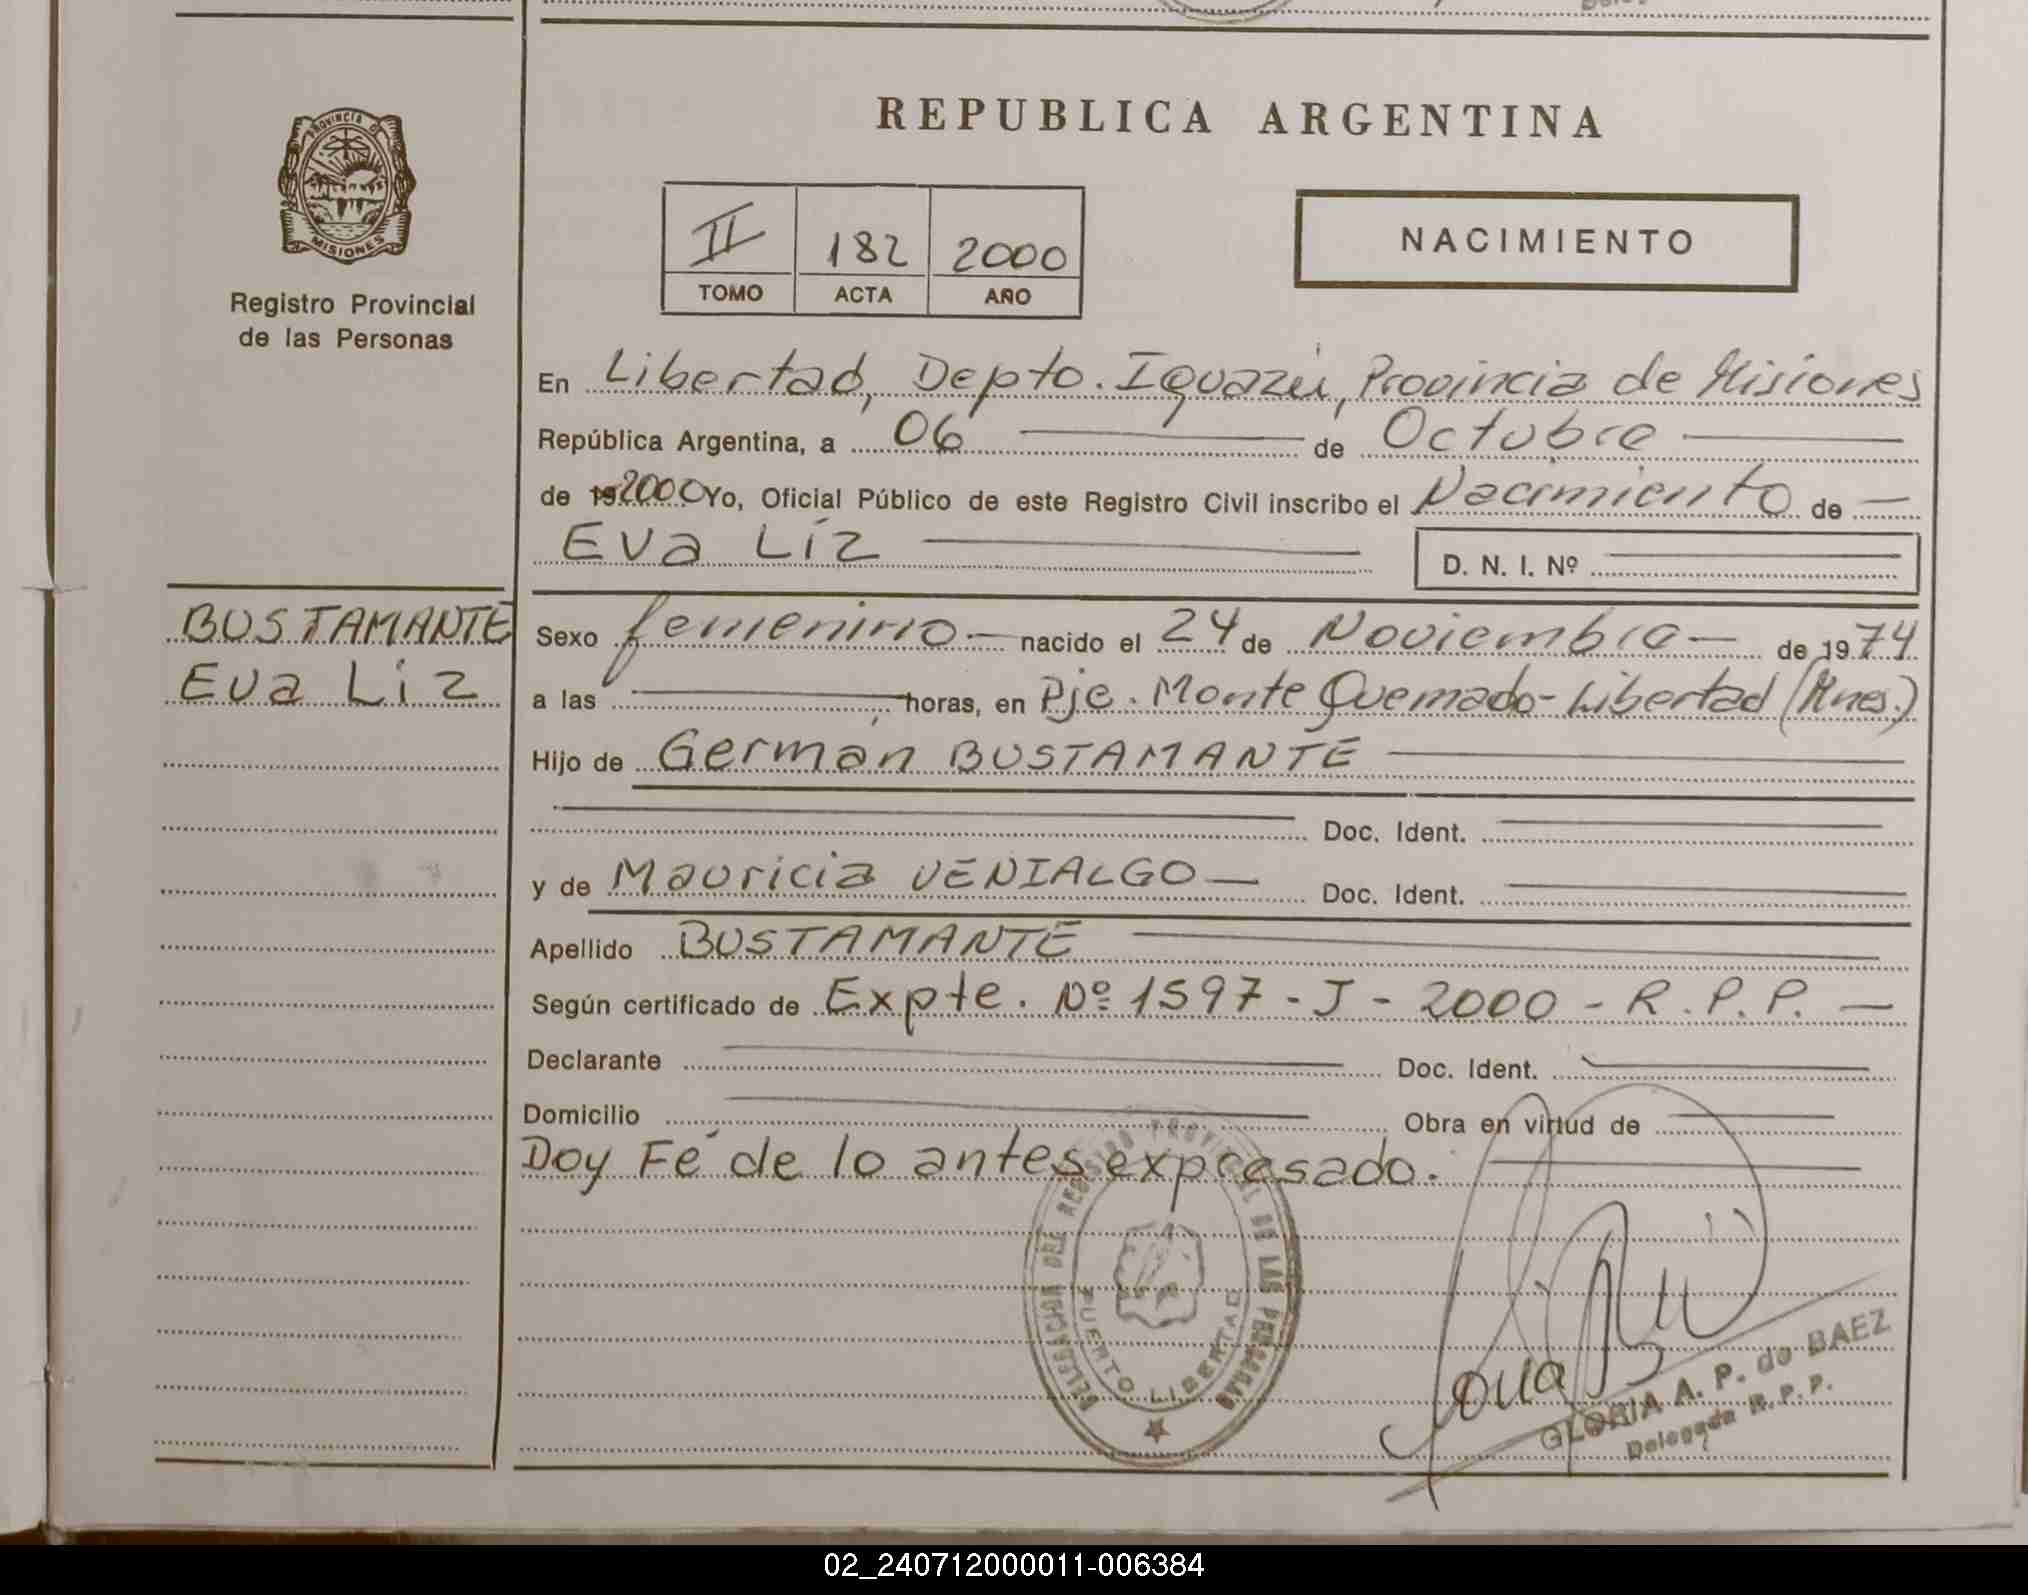 REPUBLICA ARGENTINA
PROVINCIA DE
MISIONES
Registro Provincial
de las Personas
II 182 2000
TOMO ACTA AÑO
NACIMIENTO
En Libertad, Depto. Iguazú, Provincia de Misiones
República Argentina, a 06 de Octubre
de 19 2000 Yo, Oficial Público de este Registro Civil inscribo el Nacimiento de
Eva Liz
D. N. I. Nº
BUSTAMANTE
Eva Liz
Sexo femenino nacido el 24 de Noviembre de 1974
a las horas, en Pje. Monte Quemado - Libertad (Mnes.)
Hijo de Germán BUSTAMANTE
Doc. Ident.
y de Mauricia VENIALGO Doc. Ident.
Apellido BUSTAMANTE
Según certificado de Expte. Nº 1597 - J - 2000 - R.P.P.
Declarante Doc. Ident.
Domicilio Obra en virtud de
Doy Fé de lo antes expresado.
DELEGACION DEL REGISTRO PROVINCIAL DE LAS PERSONAS
PUERTO LIBERTAD
GLORIA A. P. de BAEZ
Delegada R. P. P.
02_240712000011-006384